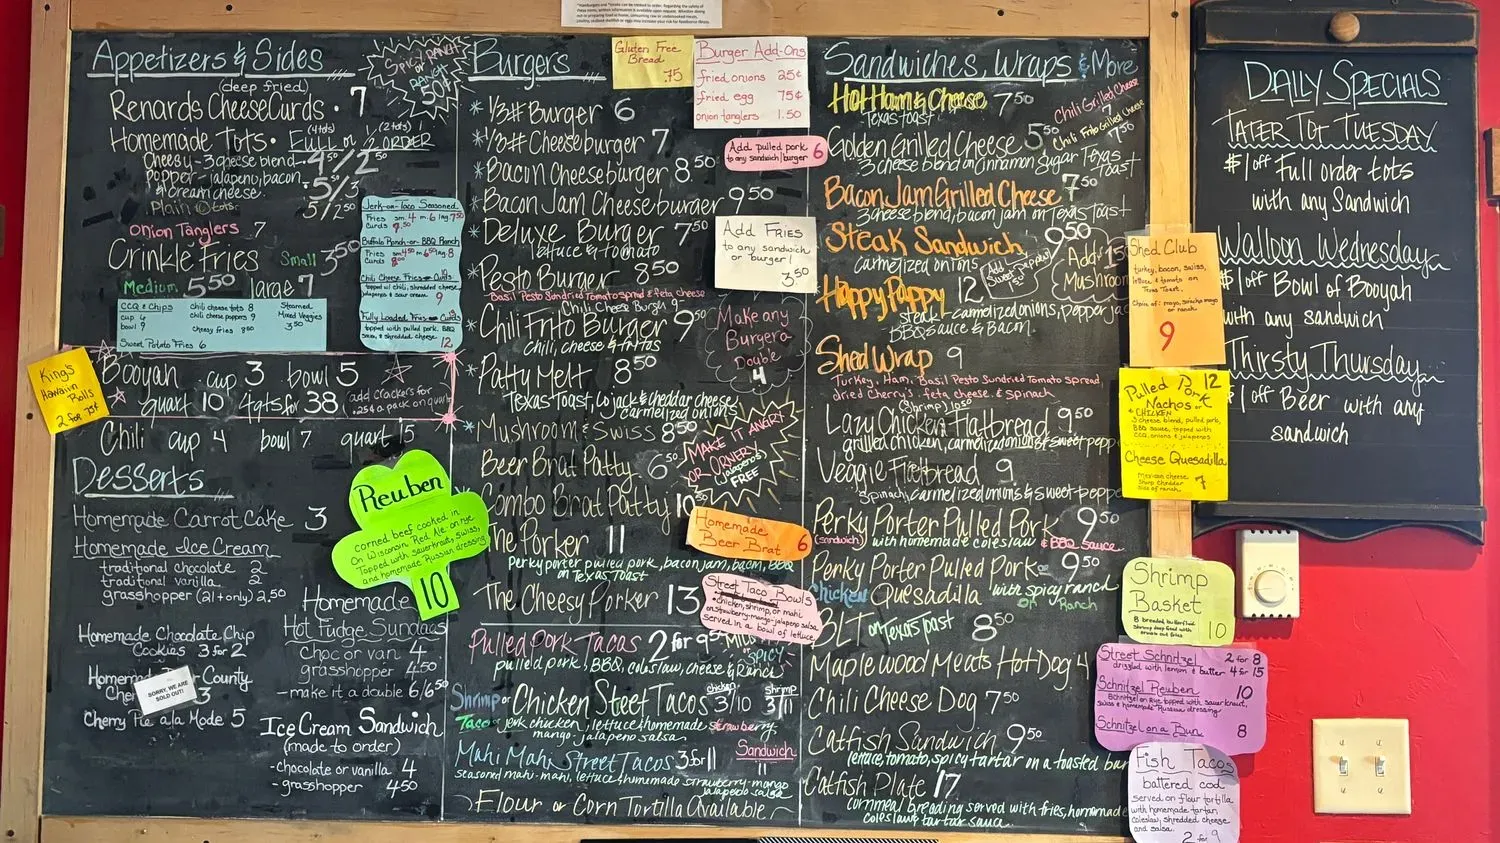 Appetizers & Sides
(deep fried)
Renards CheeseCurds · 7
Homemade Tots · Full or 1/2 order
(4 tots) (2 tots)
Cheesy - 3 cheese blend - 4 50 / 2 50
Popper - jalapeno, bacon, & cream cheese. - 5 50 / 3
Plain tots. 5 / 2 50
Onion Tanglers 7
Crinkle Fries Small 3 50
Medium 5 50 large 7
CCQ & Chips
cup 6
bowl 9
Sweet Potato Fries 6
chili cheese tots 8
chili cheese poppers 9
cheesy fries 8 50
Steamed Mixed Veggies
3 50
Spicy Ranch or Ranch 50¢
Jerk-or-Taco Seasoned
Fries sm. 4 m. 6 lrg. 7 50
Curds 7.50
Buffalo Ranch-or-BBQ Ranch
Fries sm 4 50 m 6 50 lrg. 8
Curds 8 00
Chili Cheese Fries or Curds
topped w/ chili, shredded cheese,
jalapenos & sour cream 9
Fully Loaded Fries or Curds
topped with pulled pork, BBQ
sauce, & shredded cheese 12
King's
Hawaiian
Rolls
2 for 75¢
Booyah cup 3 bowl 5
quart 10 4 qts for 38
add crackers for
.25¢ a pack on quarts
Chili cup 4 bowl 7 quart 15
Desserts
Homemade Carrot Cake 3
Homemade Ice Cream
traditional chocolate 2
traditional vanilla 2
grasshopper (21+only) 2.50
Homemade Chocolate Chip
Cookies 3 for 2
County
3
SORRY, WE ARE
SOLD OUT!
Cherry Pie ala Mode 5
Homemade
Hot Fudge Sundaes
choc or van 4
grasshopper 4 50
- make it a double 6/6 50
Ice Cream Sandwich
(made to order)
- chocolate or vanilla 4
- grasshopper 4 50
Reuben
corned beef cooked in
On Wisconsin Red Ale on rye
Topped with sauerkraut, swiss,
and homemade Russian dressing
10
Burgers
Gluten Free
Bread
.75
Burger Add-Ons
fried onions 25¢
fried egg 75¢
onion tanglers 1.50
* 1/3# Burger 6
* 1/3# Cheeseburger 7
* Bacon Cheeseburger 8 50
* Bacon Jam Cheeseburger 9 50
* Deluxe Burger 7 50
lettuce & tomato
* Pesto Burger 8 50
Basil Pesto Sundried Tomato spread & feta cheese
Chili Cheese Burger
* Chili Frito Burger 9 50
chili, cheese & fritos
* Patty Melt 8 50
Texas Toast, cojack & cheddar cheese
carmelized onions
* Mushroom & Swiss 8 50
Beer Brat Patty 6 50
Combo Brat Patty 10 50
The Porker 11
Perky porter pulled pork, bacon jam, bacon, BBQ
on Texas Toast
The Cheesy Porker 13
Add pulled pork
to any sandwich/burger 6
Add FRIES
to any sandwich
or burger!
3.50
Make any
Burger a
Double
4
MAKE IT ANGRY
OR ORNERY
(jalapenos)
FREE
Homemade
Beer Brat 6
Street Taco Bowls
chicken, shrimp, or mahi
on strawberry-mango-jalapeno salsa
served in a bowl of lettuce
Pulled Pork Tacos 2 for 9 50 Mild or Spicy
pulled pork, BBQ, coleslaw, cheese & Ranch
Shrimp or Chicken Steet Tacos chicken 3/10 shrimp 3/11
Tacos jerk chicken, lettuce & homemade strawberry
mango-jalapeno salsa
Mahi Mahi Street Tacos 3 for 11 Sandwich 11
seasoned mahi-mahi, lettuce & homemade strawberry-mango
jalapeno salsa
Flour or Corn Tortilla Available
Sandwiches, Wraps & More
Hot Ham & Cheese 7 50
Texas toast
Chili Grilled Cheese
Chili Frito Grilled Cheese
7 50
Golden Grilled Cheese 5 50
3 cheese blend on cinnamon sugar Texas
Toast
Bacon Jam Grilled Cheese 7 50
3 cheese blend, bacon jam on Texas Toast
Steak Sandwich 9 50
carmelized onions
Add Sweet Peppers
Add Mushroom
Happy Pappy 12
steak, carmelized onions, pepperjack
BBQ sauce & Bacon.
Shed Wrap 9
Turkey, Ham, Basil Pesto Sundried Tomato spread,
dried Cherry's, feta cheese, & spinach
(Shrimp) 10 50
Lazy Chicken Flatbread 9 50
grilled chicken, carmelized onions & sweet pepp
Veggie Flatbread 9
spinach, carmelized onions & sweet peppe
Perky Porter Pulled Pork 9 50
(sandwich) with homemade coleslaw & BBQ sauce
Perky Porter Pulled Pork or 9 50
Chicken Quesadilla with spicy ranch
or Ranch
BLT on Texas toast 8 50
Maplewood Meats Hot Dog 4
Chili Cheese Dog 7 50
Catfish Sandwich 9 50
lettuce, tomato, spicy tartar on a toasted bun
Catfish Plate 17
cornmeal breading served with fries, homemade
coleslaw, tartar sauce
Shed Club
turkey, bacon, swiss,
lettuce & tomato on
Texas Toast.
Choice of: mayo, sriracha mayo
or ranch.
9
Pulled Pork 12
Nachos or
CHICKEN
3 cheese blend, pulled pork,
BBQ sauce, topped with
onions & jalapenos
Cheese Quesadilla
7
Shrimp
Basket
10
Street Schnitzel 2 for 8
drizzled with lemon & butter 4 for 15
Schnitzel Reuben 10
Schnitzel on Rye topped with sauerkraut,
swiss & homemade Russian dressing
Schnitzel on a Bun 8
Fish Tacos
battered cod
served on flour tortilla
with homemade tartar
coleslaw, shredded cheese
and salsa.
2 for 9
DAILY SPECIALS
TATER TOT TUESDAY
$1 off Full order tots
with any Sandwich
Walloon Wednesday
$1 off Bowl of Booyah
with any sandwich
Thirsty Thursday
$1 off Beer with any
sandwich